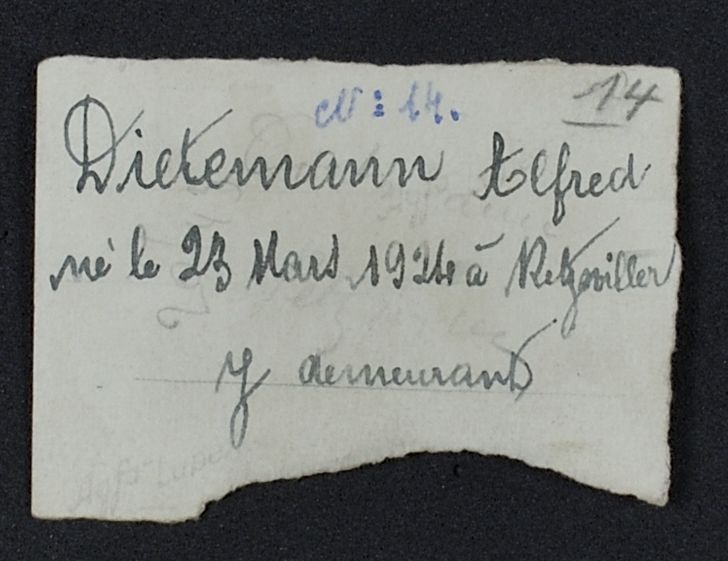 N: 14.
14
Dietemann Alfred
né le 23 Mars 1924 à Retzwiller
y demeurant